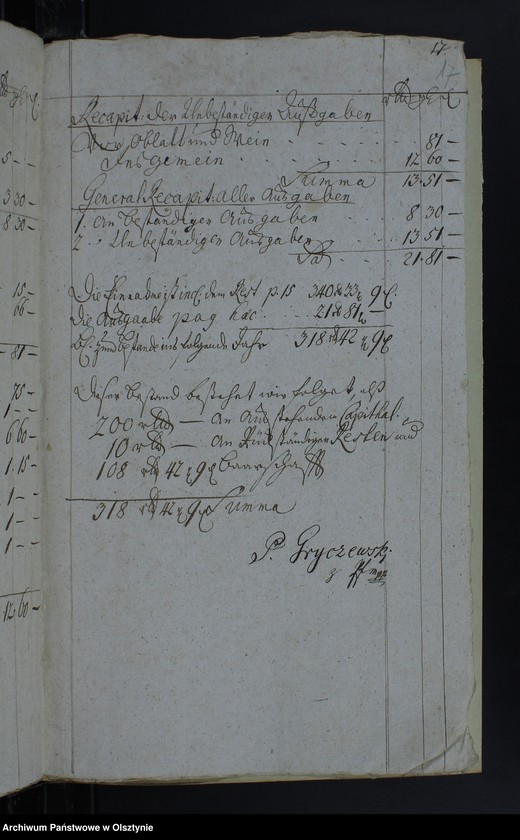 17
17
Recapit. der Unbeständigen Ausgaben
Vor Oblatt und Wein 81 —
Insgemein 12 60 —
Summa 13. 51 —
General Recapit. aller Ausgaben
1. An beständigen Ausgaben 8 30 —
2. Unbeständigen Ausgaben 13 51 —
21. 81 —
Die Einnahme ist incl. dem Rest p. 15 340 33 9
die Ausgaabe pag hac. 21 81 —
zum bestande ins folgende Jahr 318 42 9
Dieser bestand bestehet wie folget, als
200 — An Ausstehenden Capithal.
10 — An Rückständigen Resten und
108 42 9 Baarschafft
318 42 9 Summa
P. Gryczewski
5 — —
3 30 —
8 30 —
15 —
66 —
81 —
75 —
1 — —
6 60 —
1. 15 —
1 — —
1 — —
1 — —
12 60 —
Archiwum Państwowe w Olsztynie